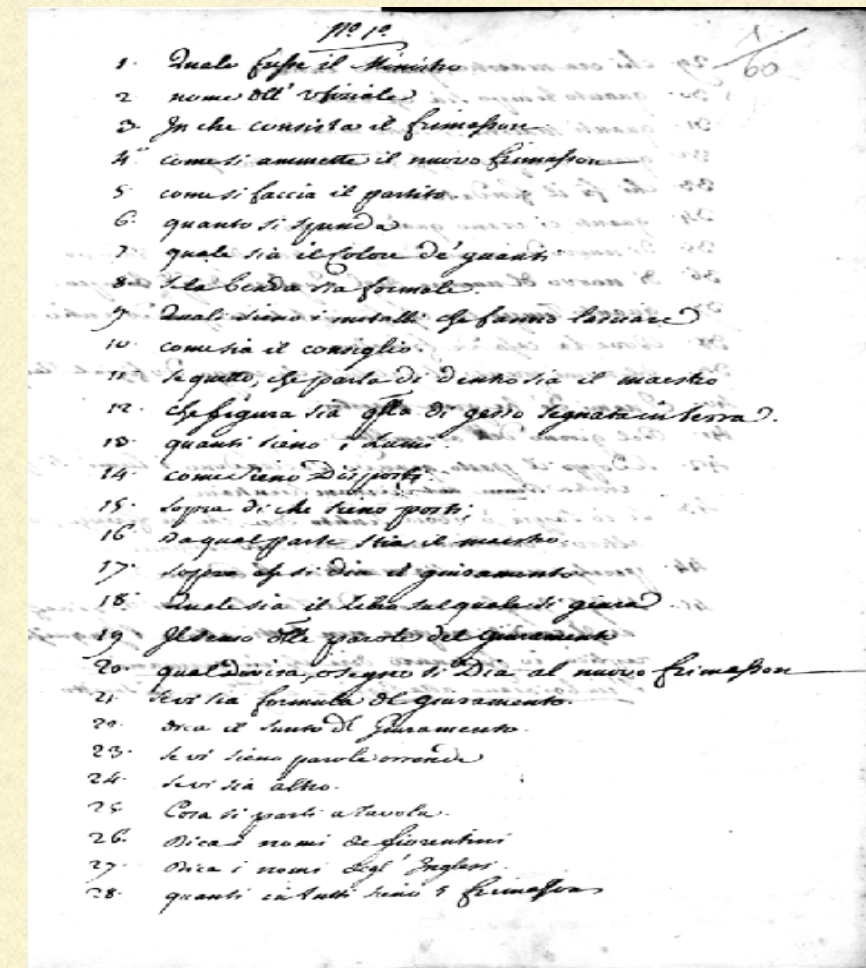 N.º 1.º
1
60
1. Quale fusse il Ministro
2. nome dll' Vfiziale
3. In che consista il frimasson
4. come si ammette il nuovo frimasson
5. come si faccia il partito.
6. quanto si spenda
7. quale sia il Colore de' guanti
8. se la benda sia formale.
9. Quali sieno i metalli che fanno lasciare
10. come sia il consiglio.
11. se quello, che parla di dentro sia il maestro
12. che figura sia qlla di gesso segnata in terra.
13. quanti sieno i Lumi.
14. come sieno Disposti.
15. sopra di che sieno posti;
16. Da qual parte stia il maestro.
17. soppra che si dia il giuramento
18. Quale sia il Libro sul quale si giura.
19. Il senso dlle parole del giuramento
20. qual Divisa, o segno si Dia al nuovo frimasson
21. se vi sia formula dl giuramento.
22. dica il sunto dl Giuramento.
23. se vi sieno parole orrende
24. se vi sia altro.
25. Cosa si parli a tavola.
26. Dica i nomi de fiorentini
27. Dica i nomi degl' Inglesi.
28. quanti in tutti sieno i frimassons